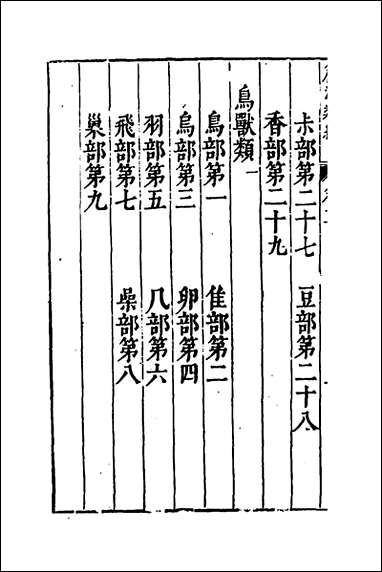 尗部第二十七　豆部第二十八
香部第二十九
鳥獸類一
鳥部第一　隹部第二
烏部第三　卵部第四
羽部第五　几部第六
飛部第七　喿部第八
巢部第九